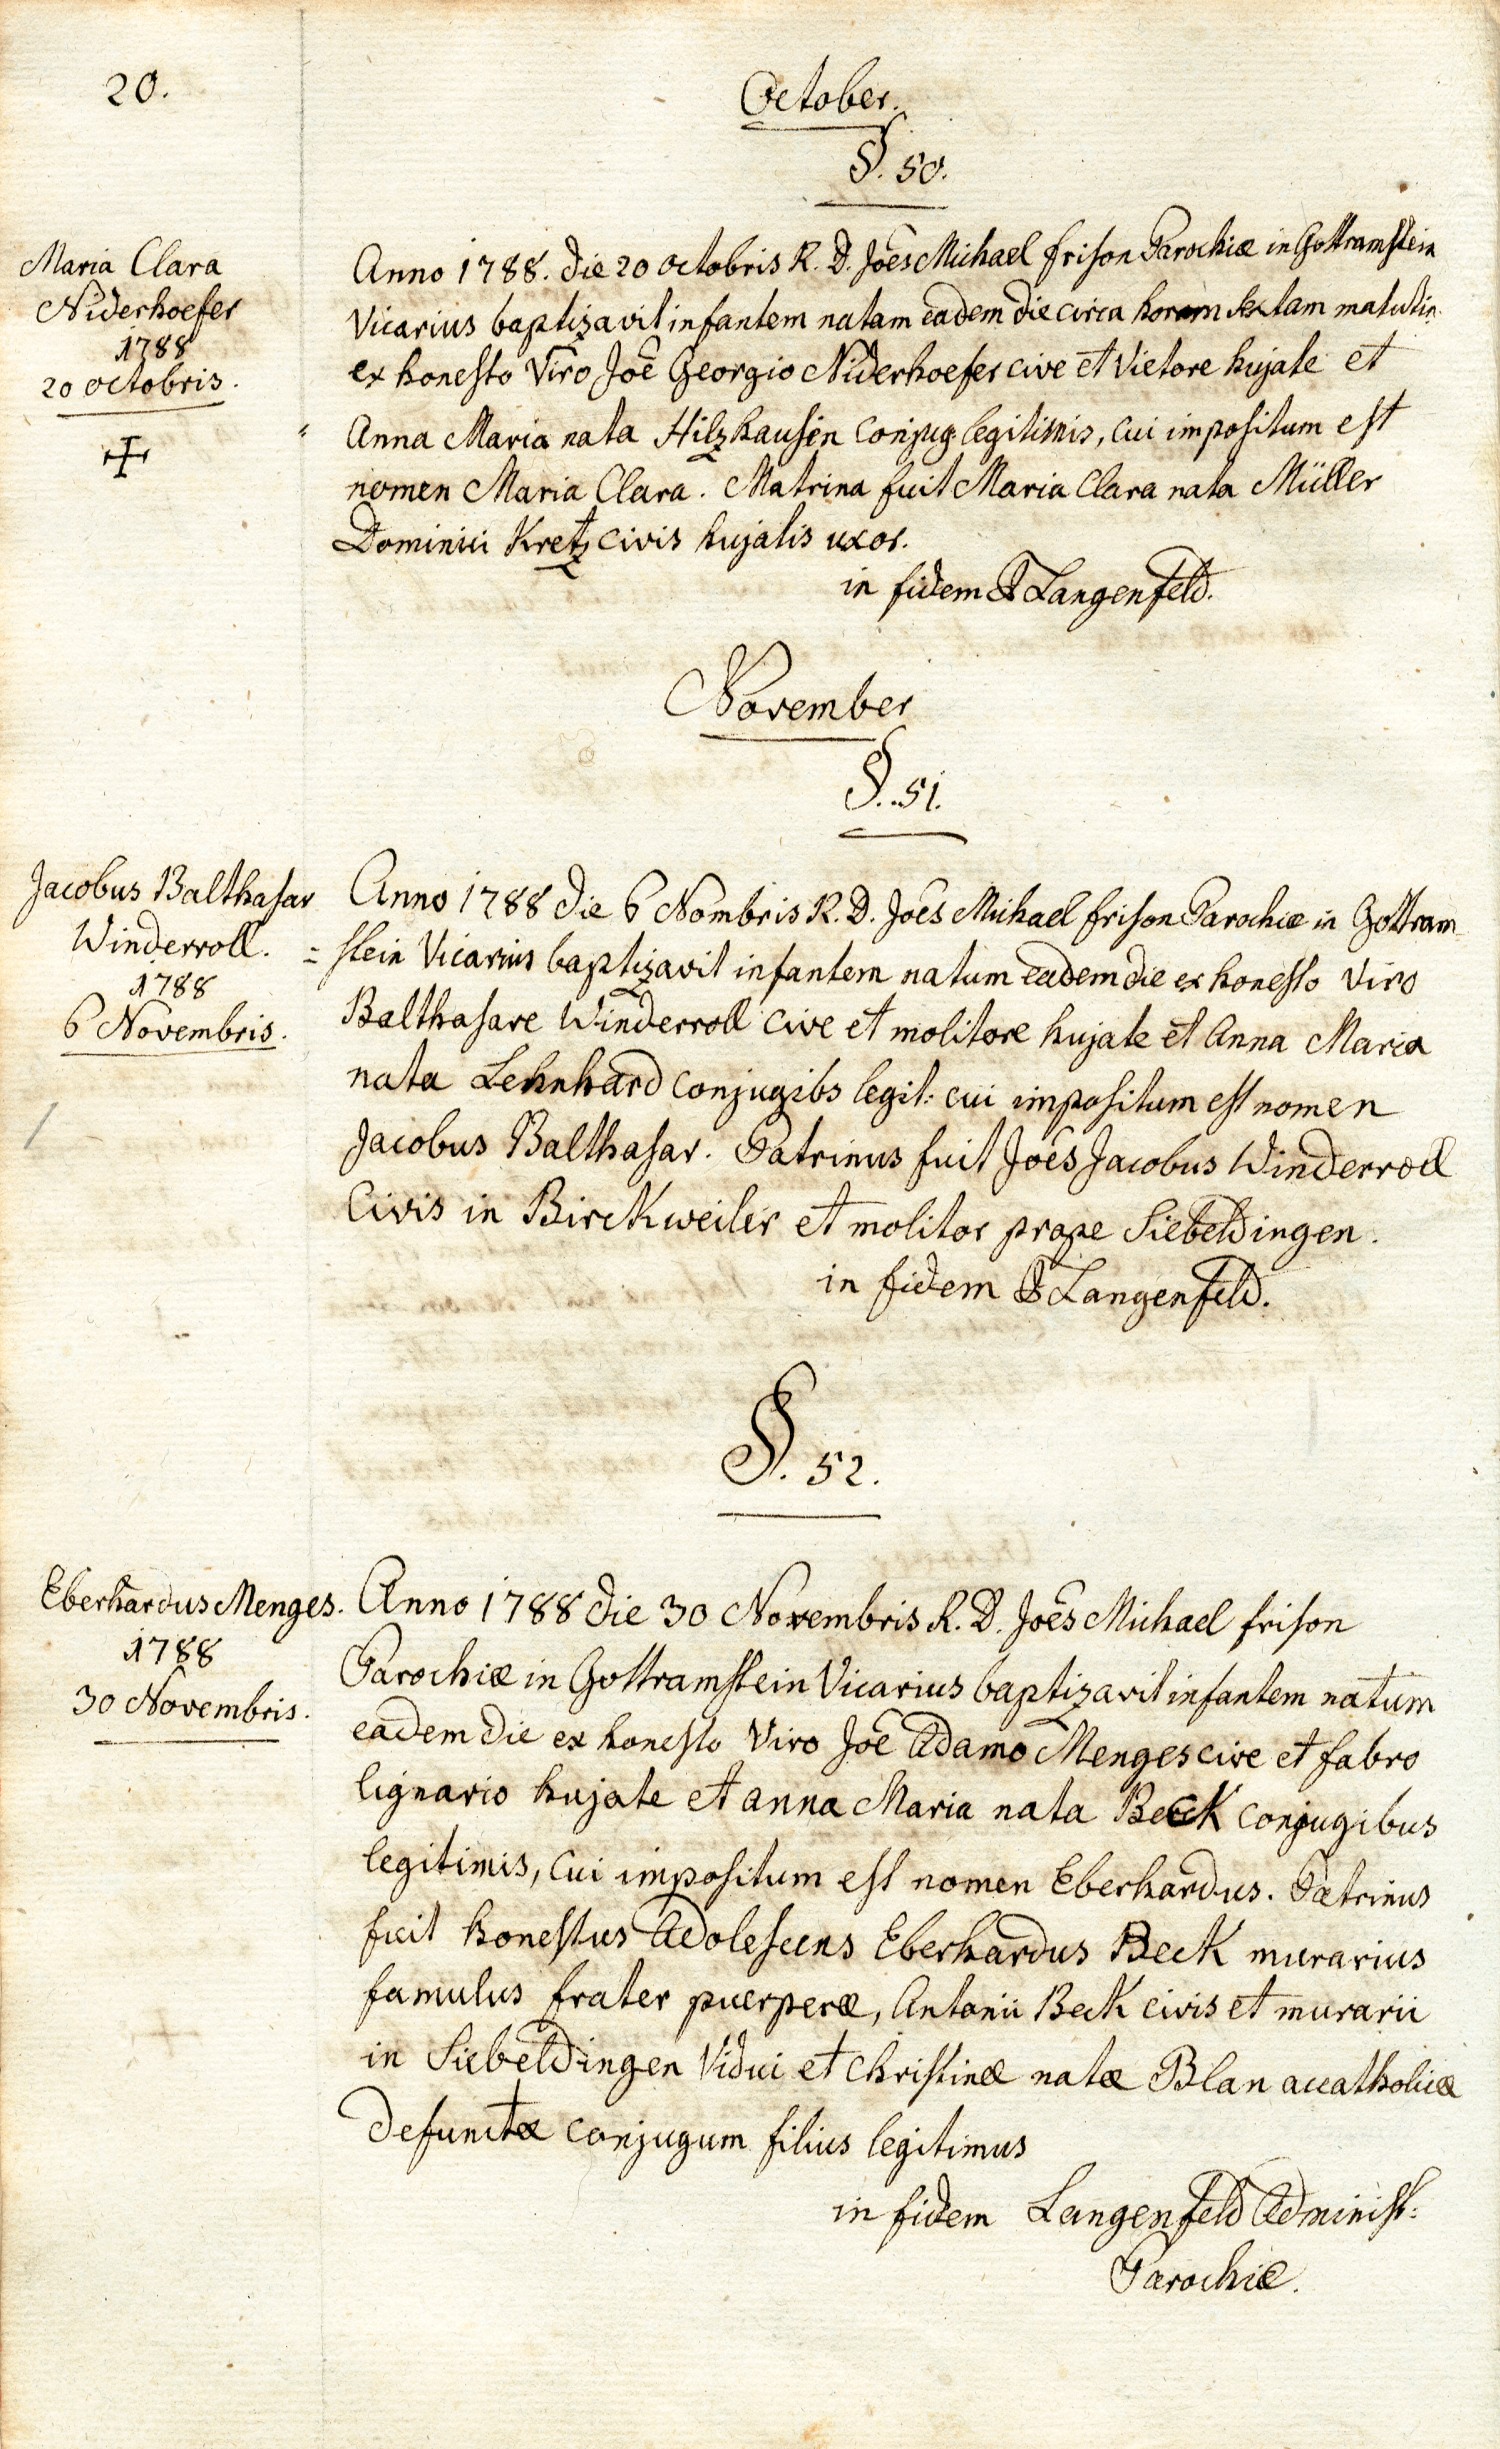 20.
October.
§. 50.
Maria Clara
Niderhoefer
1788
20 octobris.
Anno 1788. die 20 octobris R. D. Joēs Michael frison Parochiæ in Gottramstein
Vicarius baptizavit infantem natam eadem die circa horam sextam matutin.
ex honesto Viro Joē Georgio Niderhoefer cive et Vietore hujate et
Anna Maria nata Hilzhausen conjug. legitimis, cui impositum est
nomen Maria Clara. Matrina fuit Maria Clara nata Müller
Dominici Kretz civis hujatis uxor.
in fidem Langenfeld.
November
§. 51.
Jacobus Balthasar
Winderroll.
1788
6 Novembris.
Anno 1788 die 6 Nombris R. D. Joēs Michael frison Parochiæ in Gottram
= stein Vicarius baptizavit infantem natum eadem die ex honesto Viro
Balthasare Winderroll cive et molitore hujate et Anna Maria
nata Lehnhard conjugibs legit: cui impositum est nomen
Jacobus Balthasar. Patrinus fuit Joēs Jacobus Winderroll
Civis in Birckweiler et molitor prope Siebeldingen.
in fidem Langenfeld.
§. 52.
Eberhardus Menges.
1788
30 Novembris.
Anno 1788 die 30 Novembris R. D. Joēs Michael frison
Parochiæ in Gottramstein Vicarius baptizavit infantem natum
eadem die ex honesto Viro Joē Adamo Menges cive et fabro
lignario hujate et anna Maria nata Beck conjugibus
legitimis, cui impositum est nomen Eberhardus. Patrinus
fuit honestus Adolescens Eberhardus Beck murarius
famulus frater puerperæ, Antonii Beck civis et murarii
in Siebeldingen Vidui et Christinæ natæ Blan accatholicæ
defunctæ conjugum filius legitimus
in fidem Langenfeld Administ:
Parochiæ.